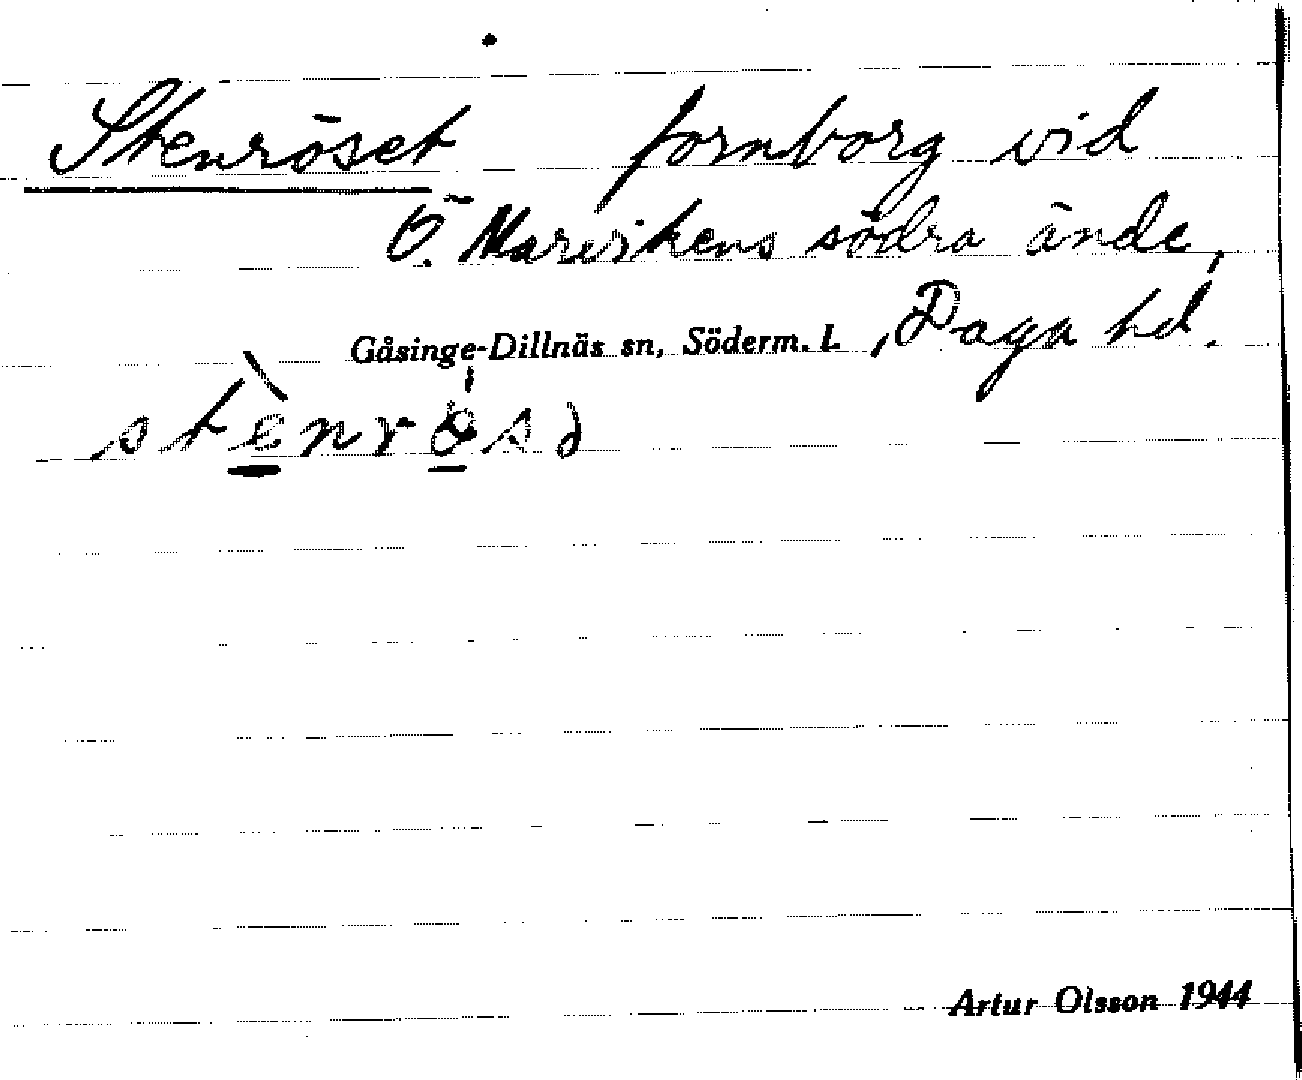 Stenröset fornborg vid
Ö. Marvikens södra ände,
Gåsinge-Dillnäs sn, Söderm. l. , Daga hd.
Artur Olsson 1944